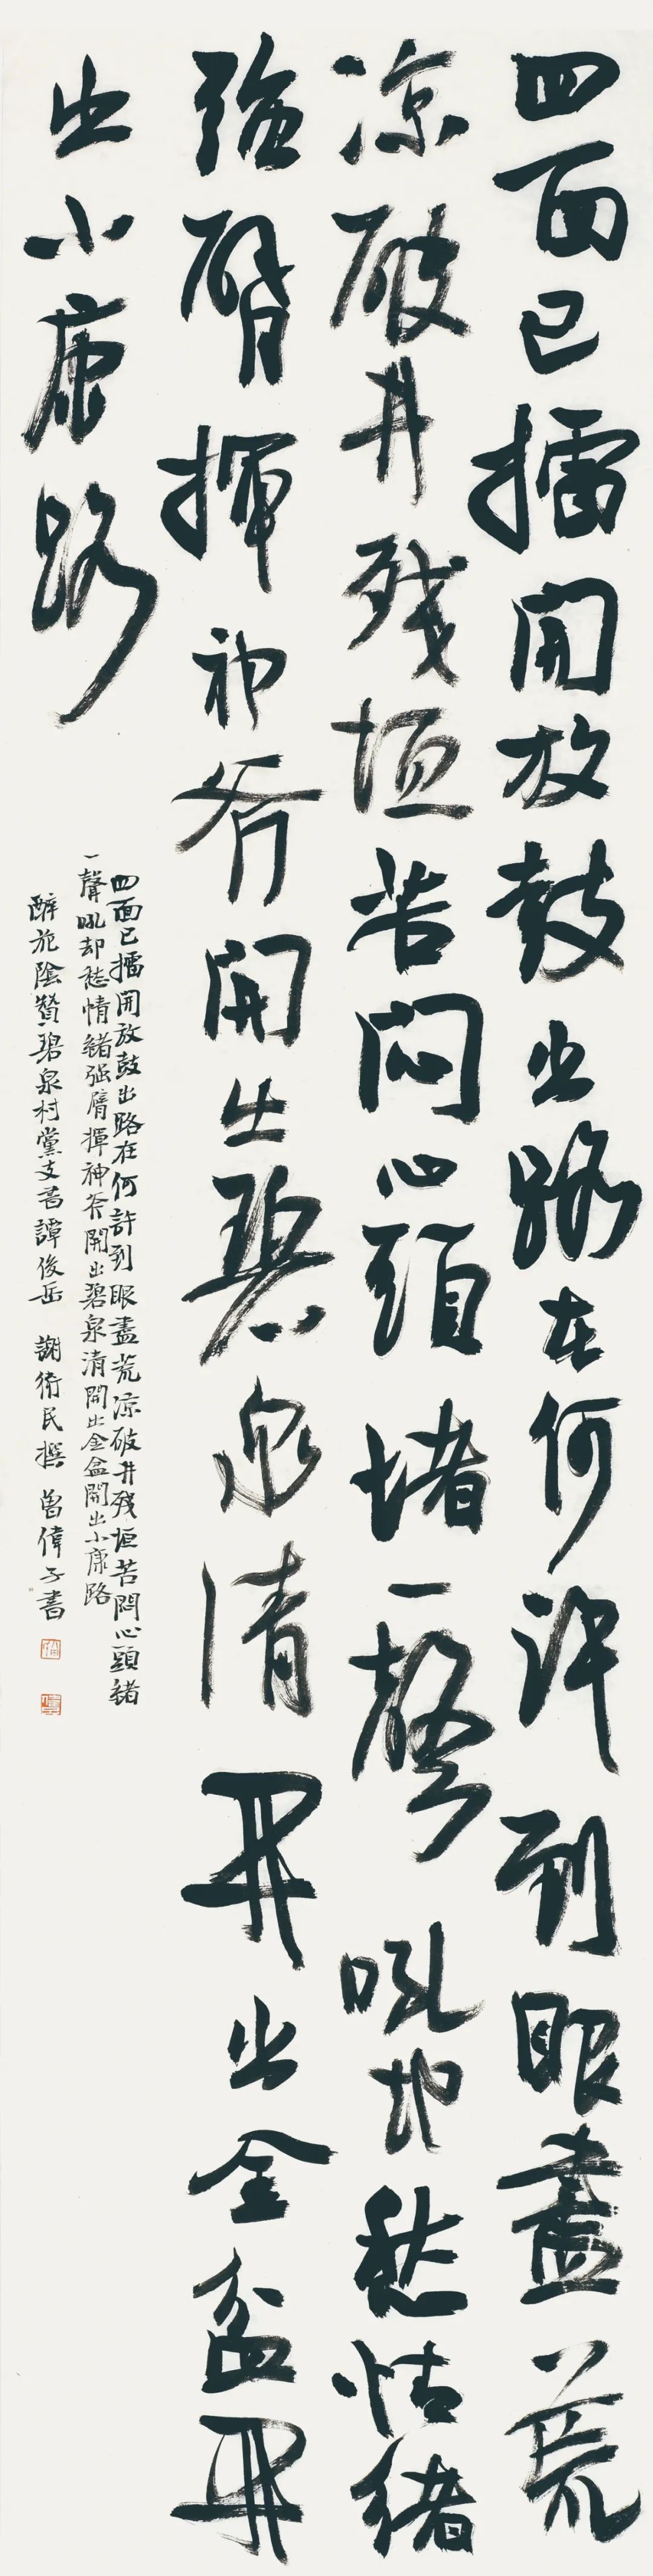 四面已擂開放鼓出路在何許到眼盡荒
凉破井残垣苦悶心頭堵一聲吼却愁情緒
強臂揮神斧開出碧泉清開出金盆開
出小康路
四面已擂開放鼓出路在何許到眼盡荒凉破井残垣苦悶心頭緒
一聲吼却愁情緒强臂揮神斧開出碧泉清開出金盆開出小康路
醉花陰贊碧泉村黨支書譚俊岳 謝術民撰 曾偉子書